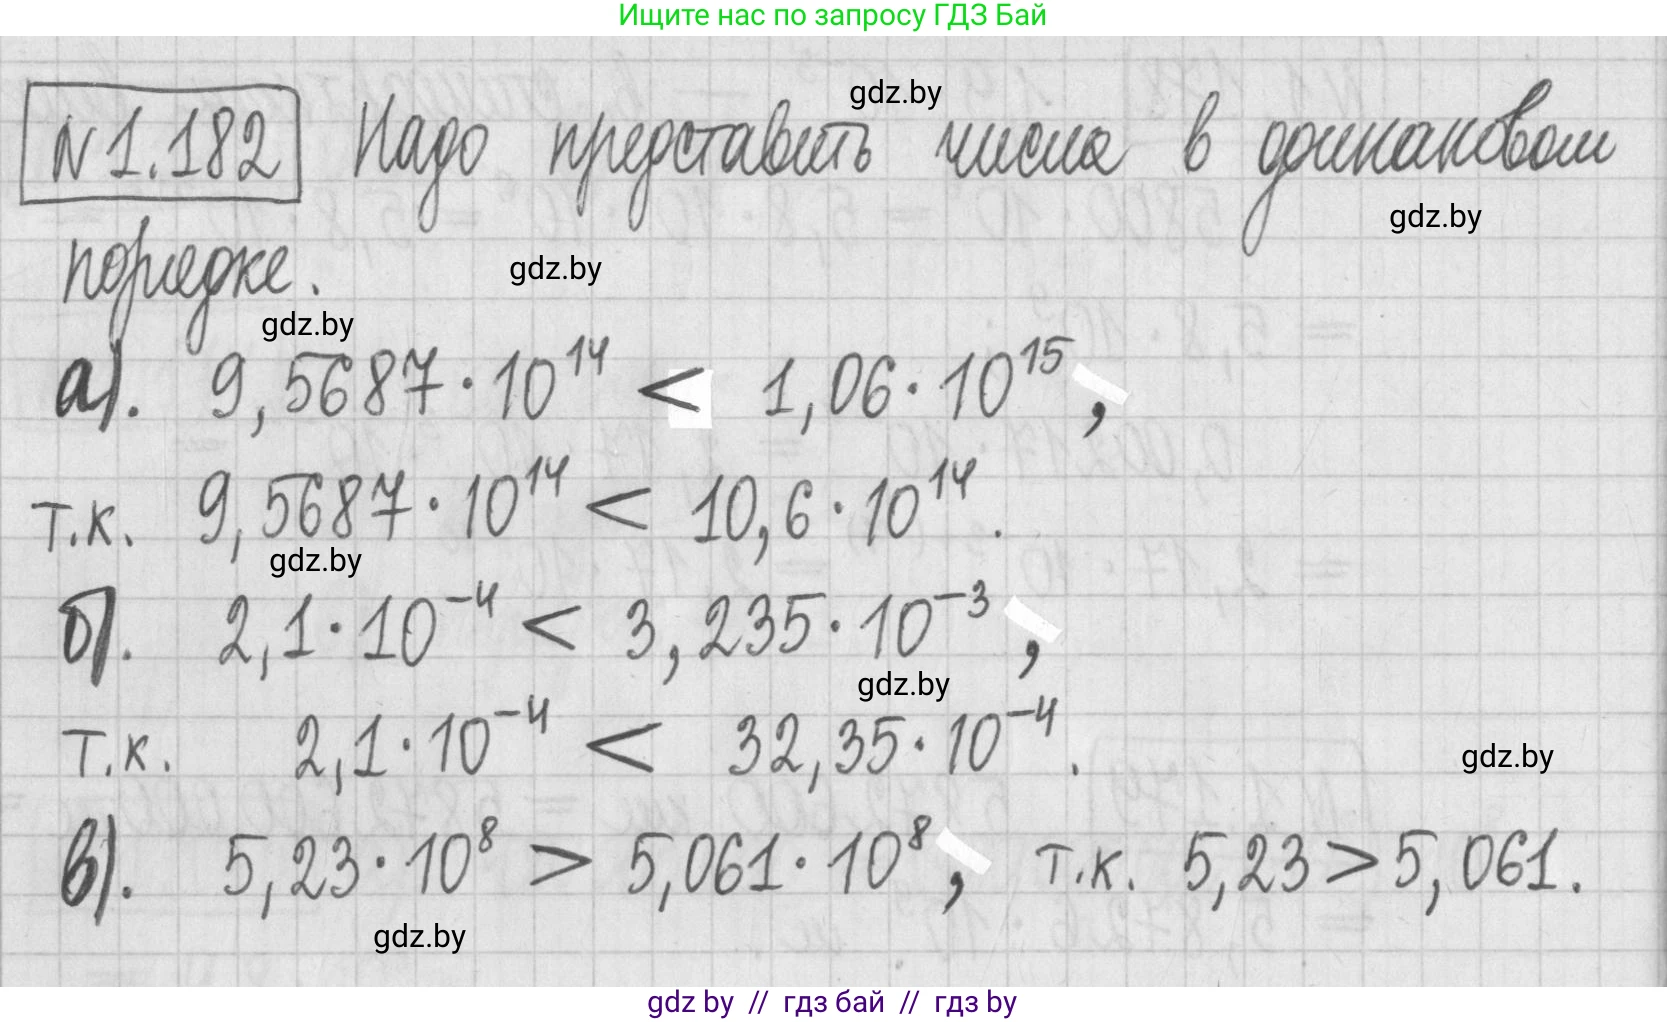 Ищите нас по запросу ГДЗ Бай
gdz.by
№1.182 Надо представить числа в одинаковом
gdz.by
порядке.
gdz.by
gdz.by
а). 9,5687·10¹⁴ < 1,06·10¹⁵,
т.к. 9,5687·10¹⁴ < 10,6·10¹⁴.
gdz.by
б). 2,1·10⁻⁴ < 3,235·10⁻³,
gdz.by
т.к. 2,1·10⁻⁴ < 32,35·10⁻⁴.
gdz.by
в). 5,23·10⁸ > 5,061·10⁸, т.к. 5,23 > 5,061.
gdz.by
gdz by // гдз бай // гдз by